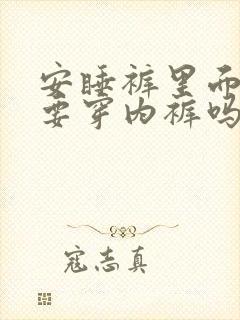 安睡裤里而
要穿内裤吗
寇志真